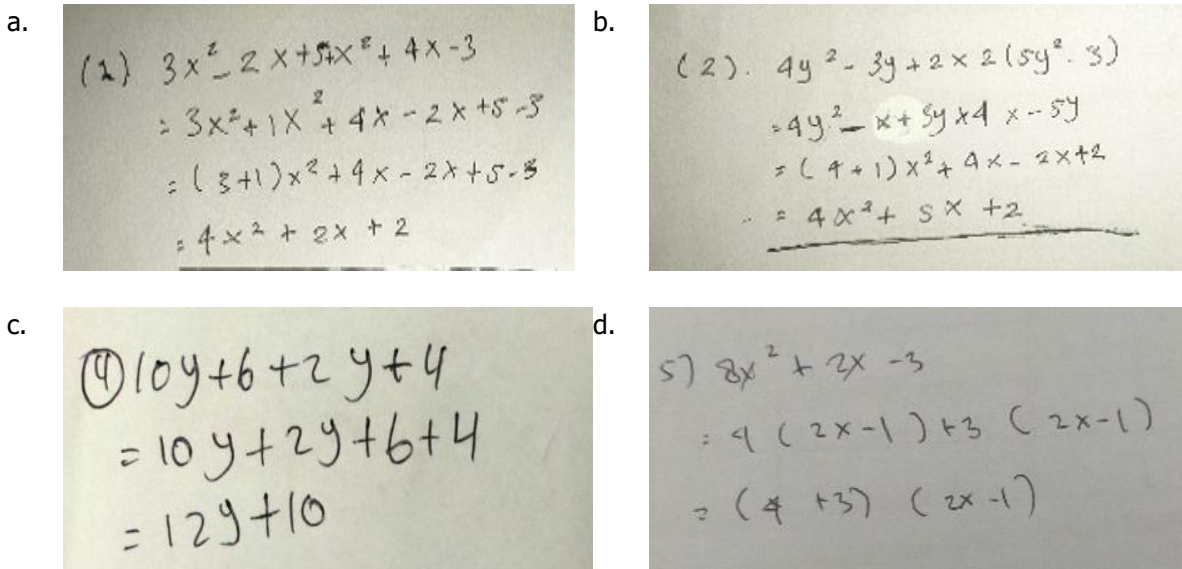 a.
(1) 3x² - 2x+5+x² + 4x-3
= 3x²+1x² + 4x - 2x +5 -3
= (3+1)x² + 4x - 2x+5-3
= 4x² + 2x + 2
b.
(2). 4y² - 3y + 2 x 2(5y² - 3)
= 4y² - x + 5y x4 x - 5y
= (4 + 1) x² + 4x - 2x+2
= 4x² + 5x +2
c.
④ 10y+6+2y+4
= 10y+2y+6+4
= 12y+10
d.
5) 8x² + 2x -3
= 4 (2x-1) +3 (2x-1)
= (4 +3) (2x-1)